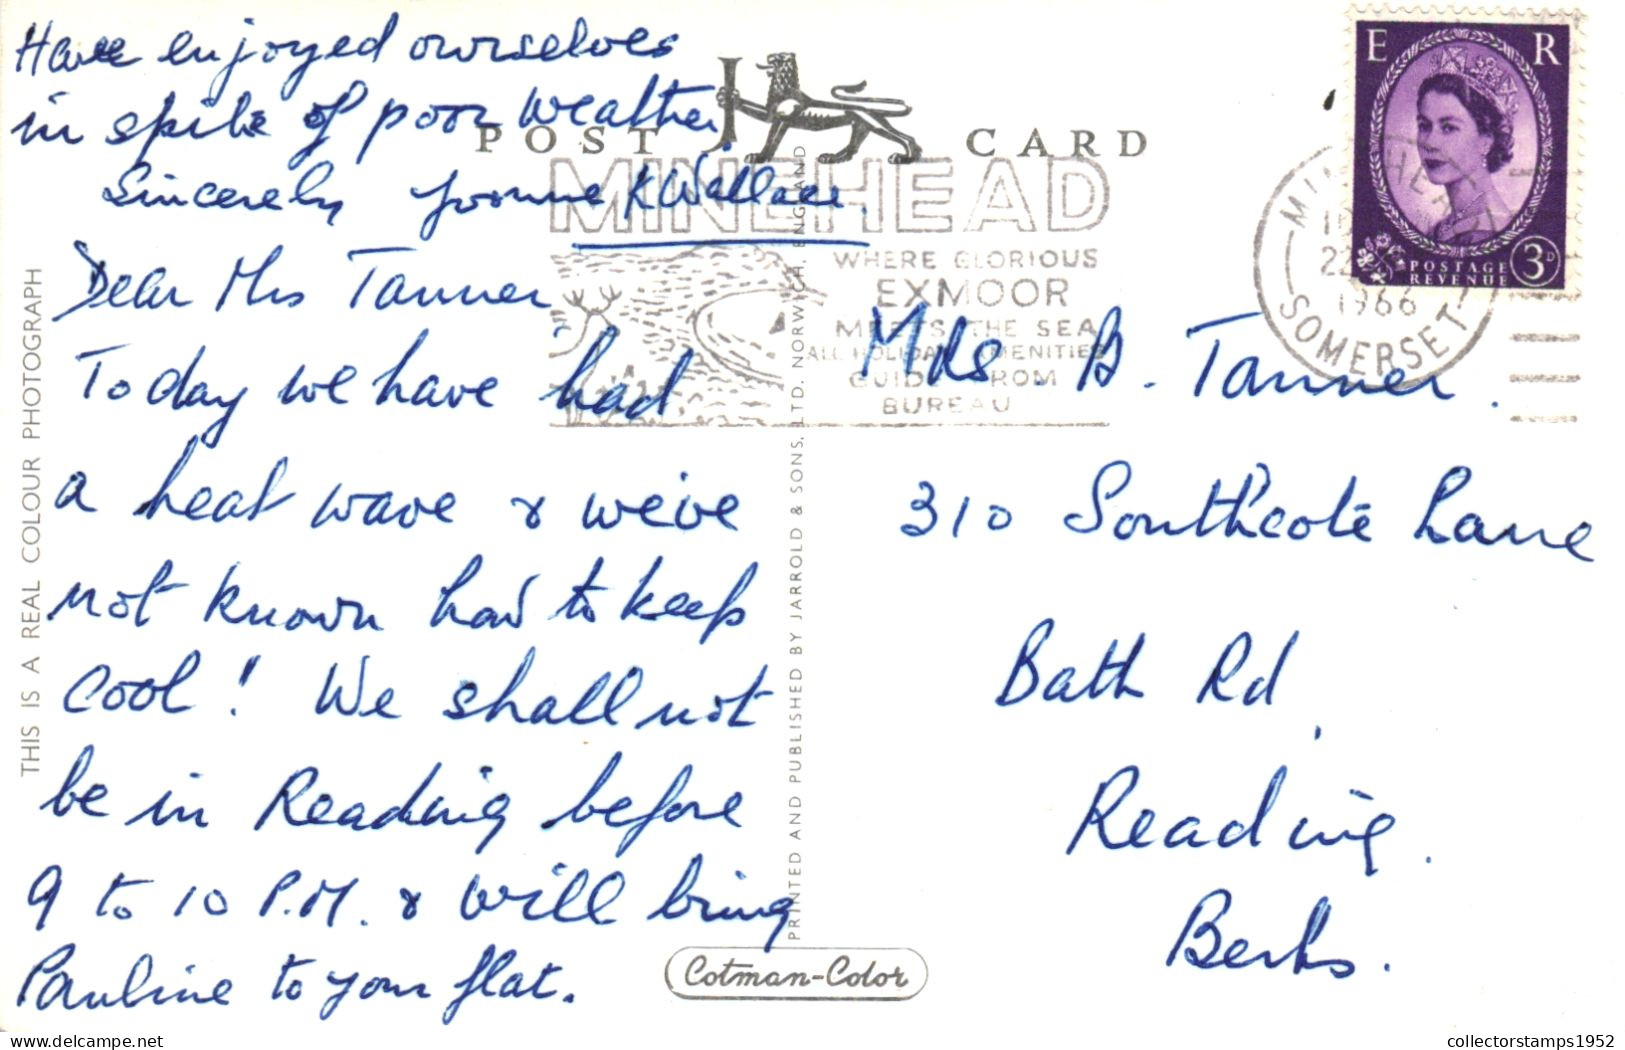 Have enjoyed ourselves
in spite of poor weather
Sincerely Yvonne K Wallace.
Dear Mrs Tanner
Today we have had
a heat wave & we've
not known how to keep
cool! We shall not
be in Reading before
9 to 10 P.M. & will bring
Pauline to your flat.
POST CARD
MINEHEAD
WHERE GLORIOUS
EXMOOR
MEETS THE SEA
ALL HOLIDAY AMENITIES
GUIDE FROM
BUREAU
E R
POSTAGE
REVENUE
3D
MINEHEAD
22
1966
SOMERSET
Mrs. B. Tanner.
310 Southcote Lane
Bath Rd,
Reading.
Berks.
THIS IS A REAL COLOUR PHOTOGRAPH
PRINTED AND PUBLISHED BY JARROLD & SONS, LTD. NORWICH, ENGLAND
Cotman-Color
collectorstamps1952